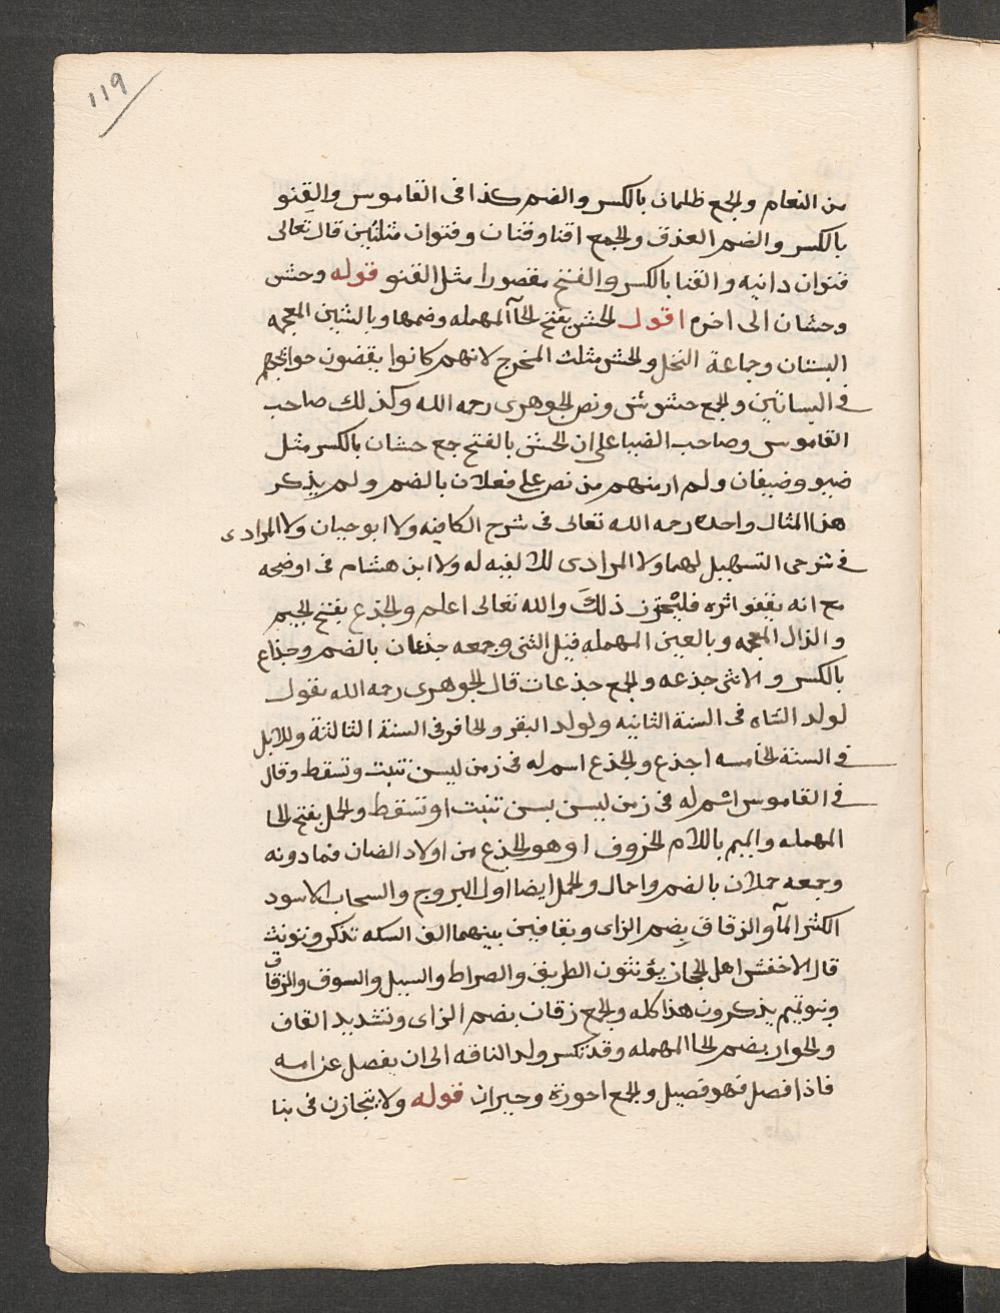 119
من النعام والجمع ظلمان بالكسر والضم كذا فى القاموس والقِنو
بالكسر والضم العذق والجمع اقنا وقنان وقنوان مثلثين قال تعالى
قنوان دانيه والقنا بالكسر والفتح مقصورا مثل القنو قوله وحش
وحشان الى اخره اقول الحش بفتح الحآ المهمله وضمها وبالشين المعجمه
البستان وجماعة النخل والحش مثلث المخرج لانهم كانوا يقضون حوايجهم
فى البساتين والجمع حشوش ونص الجوهرى رحمه الله وكذلك صاحب
القاموس وصاحب الضيا على ان الحش بالفتح جمع حشان بالكسر مثل
ضيف وضيفان ولم ار منهم من نص على فعلان بالضم ولم يذكر
هذا المثال واحد رحمه الله تعالى فى شرح الكافيه ولا ابو حيان ولا المرادى
فى شرحى التسهيل لهما ولا المرادى للالفيه له ولا ابن هشام فى اوضحه
مع انه يقفو اثره فليحرر ذلك والله تعالى اعلم والجذع بفتح الجيم
والذال المعجمه وبالعين المهمله قبل الثنى وجمعه جذعان بالضم وجذاع
بالكسر والانثى جذعه والجمع جذعات قال الجوهرى رحمه الله يقول
لولد الشاه فى السنة الثانيه ولولد البقر والحافر فى السنة الثالثة وللابل
فى السنة الخامسه اجذع والجذع اسم له فى زمن ليس تنبت وتسقط وقال
فى القاموس اسم له فى زمن ليس بسن تنبت او تسقط والحمل بفتح الحا
المهمله والميم باللام الخروف او هو الجذع من اولاد الضان فما دونه
وجمعه حملان بالضم واحمال والحمل ايضا اول البروج والسحاب الاسود
الكثير المآ والزقاق بضم الزاى وبقافين بينهما الف السكه تذكر وتونث
قال الاخفش اهل الحجاز يؤنثون الطريق والصراط والسبيل والسوق والزقاق
وبنو تميم يذكرون هذا كله والجمع زقان بضم الزاى وتشديد القاف
والحوار بضم الحا المهمله وقد تكسر ولد الناقه الى ان يفصل عن امه
فاذا فصل فهو فصيل والجمع احورة وحيران قوله ولا يتجازن فى بنا